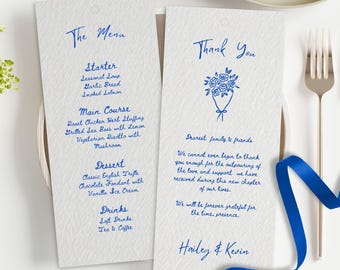 The Menu
Starter
Seasonal Soup
Garlic Bread
Smoked Salmon
Main Course
Roast Chicken With Stuffing
Grilled Sea Bass with Lemon
Vegetarian Risotto with
Mushroom
Dessert
Classic English Trifle
Chocolate Fondant with
Vanilla Ice Cream
Drinks
Soft Drinks
Tea & Coffee
Thank You
Dearest family & friends
We cannot even begin to thank
you enough for the outpouring of
the love and support we have
received during this new chapter
of our lives.
We will be forever grateful for
the time, presence.
Hailey & Kevin